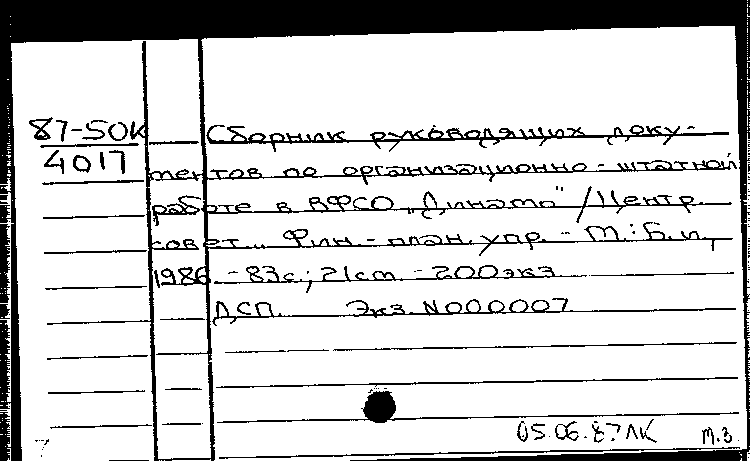 87-50К
4017
Сборник руководящих доку-
ментов по организационно-штатной
работе в ВФСО „Динамо" /Центр.
совет... Фин.-план. упр. - М.: Б.и.,
1986. - 83с.; 21см. - 200экз.
ДСП. Экз. N000007
05.06.87ЛК м.з